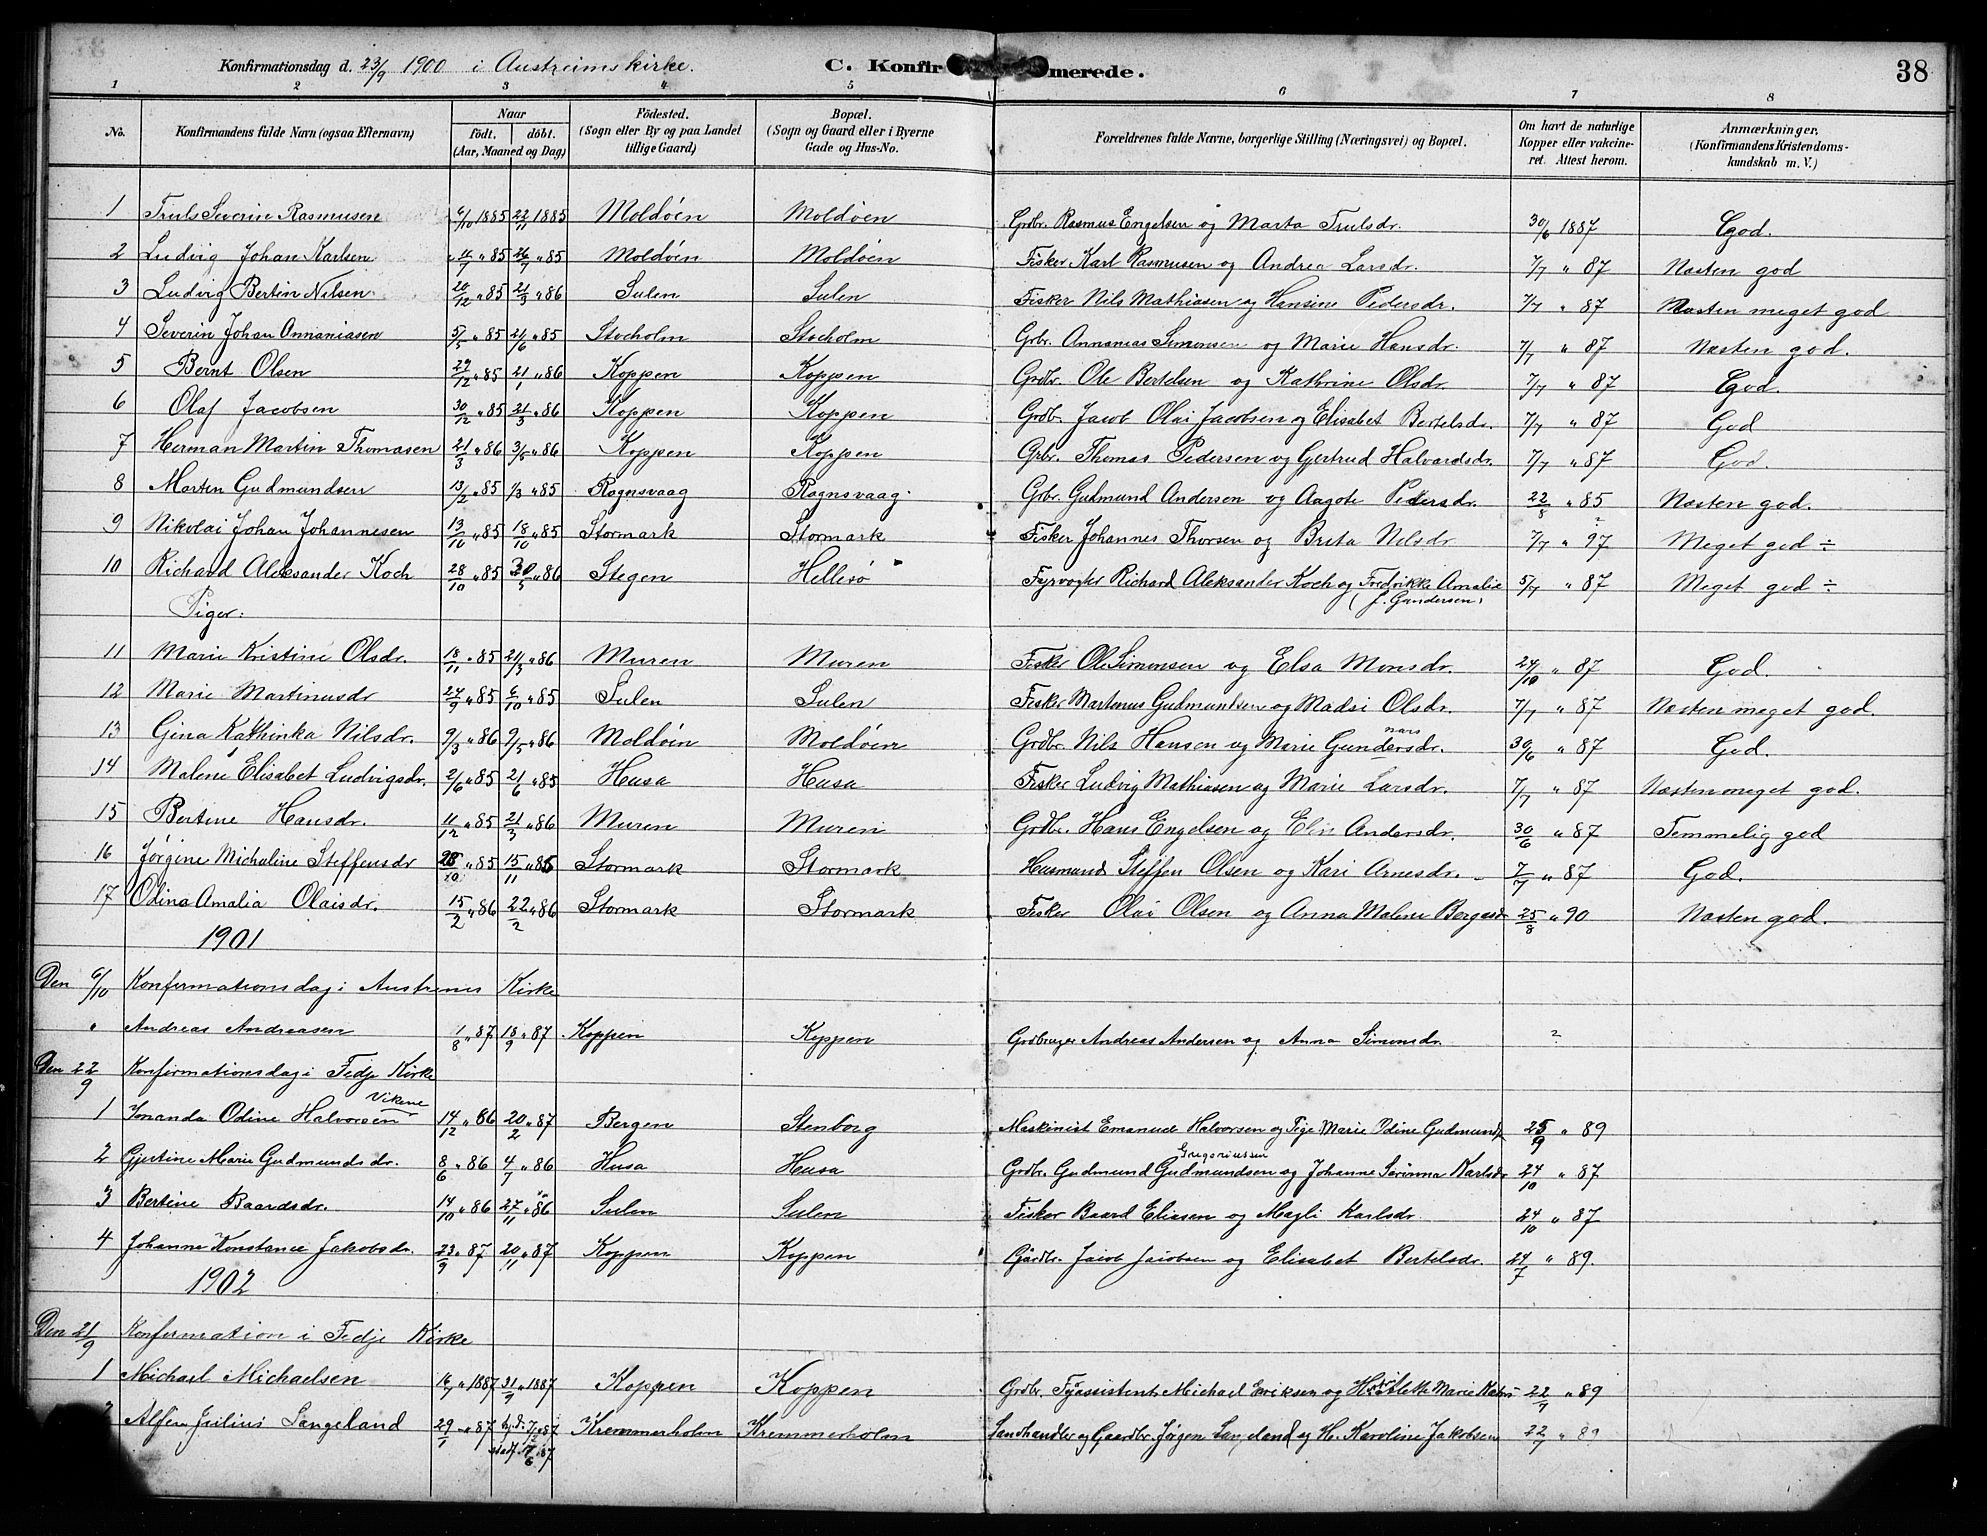 Konfirmationsdag d. 23/9 1900 i Austreimskirke. C. Konfirmerede. 38
1 2 3 4 5 6 7 8
No. Konfirmandens fulde Navn (ogsaa Efternavn) Naar födt. döbt. (Aar, Maaned og Dag) Födested. (Sogn eller By og paa Landet tillige Gaard) Bopæl. (Sogn og Gaard eller i Byerne Gade og Hus-No. Forældrenes fulde Navne, borgerlige Stilling (Næringsvei) og Bopæl. Om havt de naturlige Kopper eller vakcineret. Attest herom. Anmærkninger, (Konfirmandens Kristendomskundskab m. V.)
1 Truls Severin Rasmusen 6/10 1885 22/11 1885 Moldöen Moldöen Grdbr. Rasmus Engelsen og Marta Trulsdr. 30/6 1887 God.
2 Ludvig Johan Karlsen 11/7 " 85 26/7 " 85 Moldöen Moldöen Fisker Karl Rasmusen og Andrea Larsdr. 7/7 " 87 Næsten god
3 Ludvig Bertin Nilsen 20/12 " 85 21/3 " 86 Sulen Sulen Fisker Nils Mathiasen og Hansine Pedersdr. 7/7 " 87 Næsten meget god
4 Severin Johan Annaniasen 5/5 " 85 21/6 " 85 Stocholm Stocholm Grbr. Annanias Simonsen og Marie Hansdr. 7/7 " 87 Næsten god.
5 Bernt Olsen 29/12 " 85 21/1 " 86 Koppen Koppen Grdbr. Ole Bertelsen og Kathrine Olsdr. 7/7 " 87 God.
6 Olaf Jacobsen 30/12 " 85 21/3 " 86 Koppen Koppen Grdb. Jacob Olai Jacobsen og Elisabet Bertelsdr. 7/7 " 87 God
7 Herman Martin Thomasen 21/3 " 86 3/5 " 86 Koppen Koppen Grbr. Thomas Pedersen og Gjertrud Halvardsdr. 7/7 " 87 God.
8 Morten Gudmundsen 13/2 " 85 1/3 " 85 Rognsvaag Rognsvaag. Grbr. Gudmund Andersen og Aagote Pedersdr. 22/8 " 85 Næsten god.
9 Nikolai Johan Johannesen 13/10 " 85 18/10 " 85 Stormark Stormark Fisker Johannes Thorsen og Brita Nilsdr 7/7 " 97 ? Meget god ÷
10 Richard Aleksander Koch 28/10 " 85 30/5 " 86 Stegen Hellesö Fyrvogter Richard Aleksander Koch og Fredrikke Amalie 5/7 " 87 Meget god ÷
Piger: (f. Gundersen)
11 Marie Kristine Olsdr. 18/11 " 85 21/3 " 86 Muren Muren Fisker Ole Simonsen og Elsa Monsdr. 24/10 " 87 God.
12 Marie Martinusdr 24/9 " 85 6/10 " 85 Sulen Sulen Fisker Martenus Gudmundsen og Madsi Olsdr. 7/7 " 87 Næsten meget god.
13 Gina Kathinka Nilsdr. 9/3 " 86 9/5 " 86 Moldöen Moldöen Grdbr. Nils Hansen og Marie Gundersdr. nars 30/6 " 87 God.
14 Malene Elisabet Ludvigsdr. 2/6 " 85 21/6 " 85 Husa Husa Fisker Ludvig Mathiasen og Marie Larsdr. 7/7 " 87 Næsten meget god.
15 Bertine Hansdr. 11/12 " 85 21/3 " 86 Muren Muren Grdbr. Hans Engelsen og Elin Andersdr. 30/6 " 87 Temmelig god
16 Jørgine Michaline Steffensdr 28/10 " 85 15/11 " 85 Stormark Stormark Husmand Steffen Olsen og Kari Arnesdr. 7/7 " 87 God.
17 Odina Amalia Olaisdr. 15/2 " 86 22/2 " 86 Stormark Stormark Fisker Olai Olsen og Anna Malene 25/8 " 90 Næsten god.
1901
Den 6/10 Konfirmationsdag i Kirke
" Andreas Andreasen 1/8 " 87 18/9 " 87 Koppen Koppen Grdbruger Andreas Andersen og Anna Simonsdr. ?
Den 22/9 Konfirmationsdag i Fedje Kirke
Vikene
1 Odine Halvorsen 14/12 " 86 20/2 " 87 Bergen Stenborg Maskinist Emanuel Halvorsen og Pige Marie Odine 25/9 " 89
Gregoriussen
2 Gjertine Marie Gudmundsdr. 8/6 " 86 4/7 " 86 Husa Husa Grdbr. Gudmund Gudmundsen og Johanne Karlsdr 24/10 " 87
3 Bertine Baardsdr. 14/10 " 86 27/11 " 86 Sulen Sulen Fisker Baard Eliasen og Magli Karlsdr. 24/10 " 87
4 Johanne Konstance Jakobsdr. 23/9 " 87 20/11 " 87 Koppen Koppen Gårdbr. Jacob Jacobsen og Elisabet Bertelsdr. 24/7 " 89.
1902
Den 21/9 Konfirmation i Fedje Kirke
1 Michael Michaelsen 16/7 " 1887 31/7 " 1887 Koppen Koppen Grdbr. Fyrassistent Michael Eriksen og Marie 22/7 " 89
2 Alfen Julius Langeland 29/1 " 87 87 Kremmerholm Kremmerholm Landhandler og Gaardbr. Jørgen Langeland og H. Karoline Jakobsen 22/7 " 89